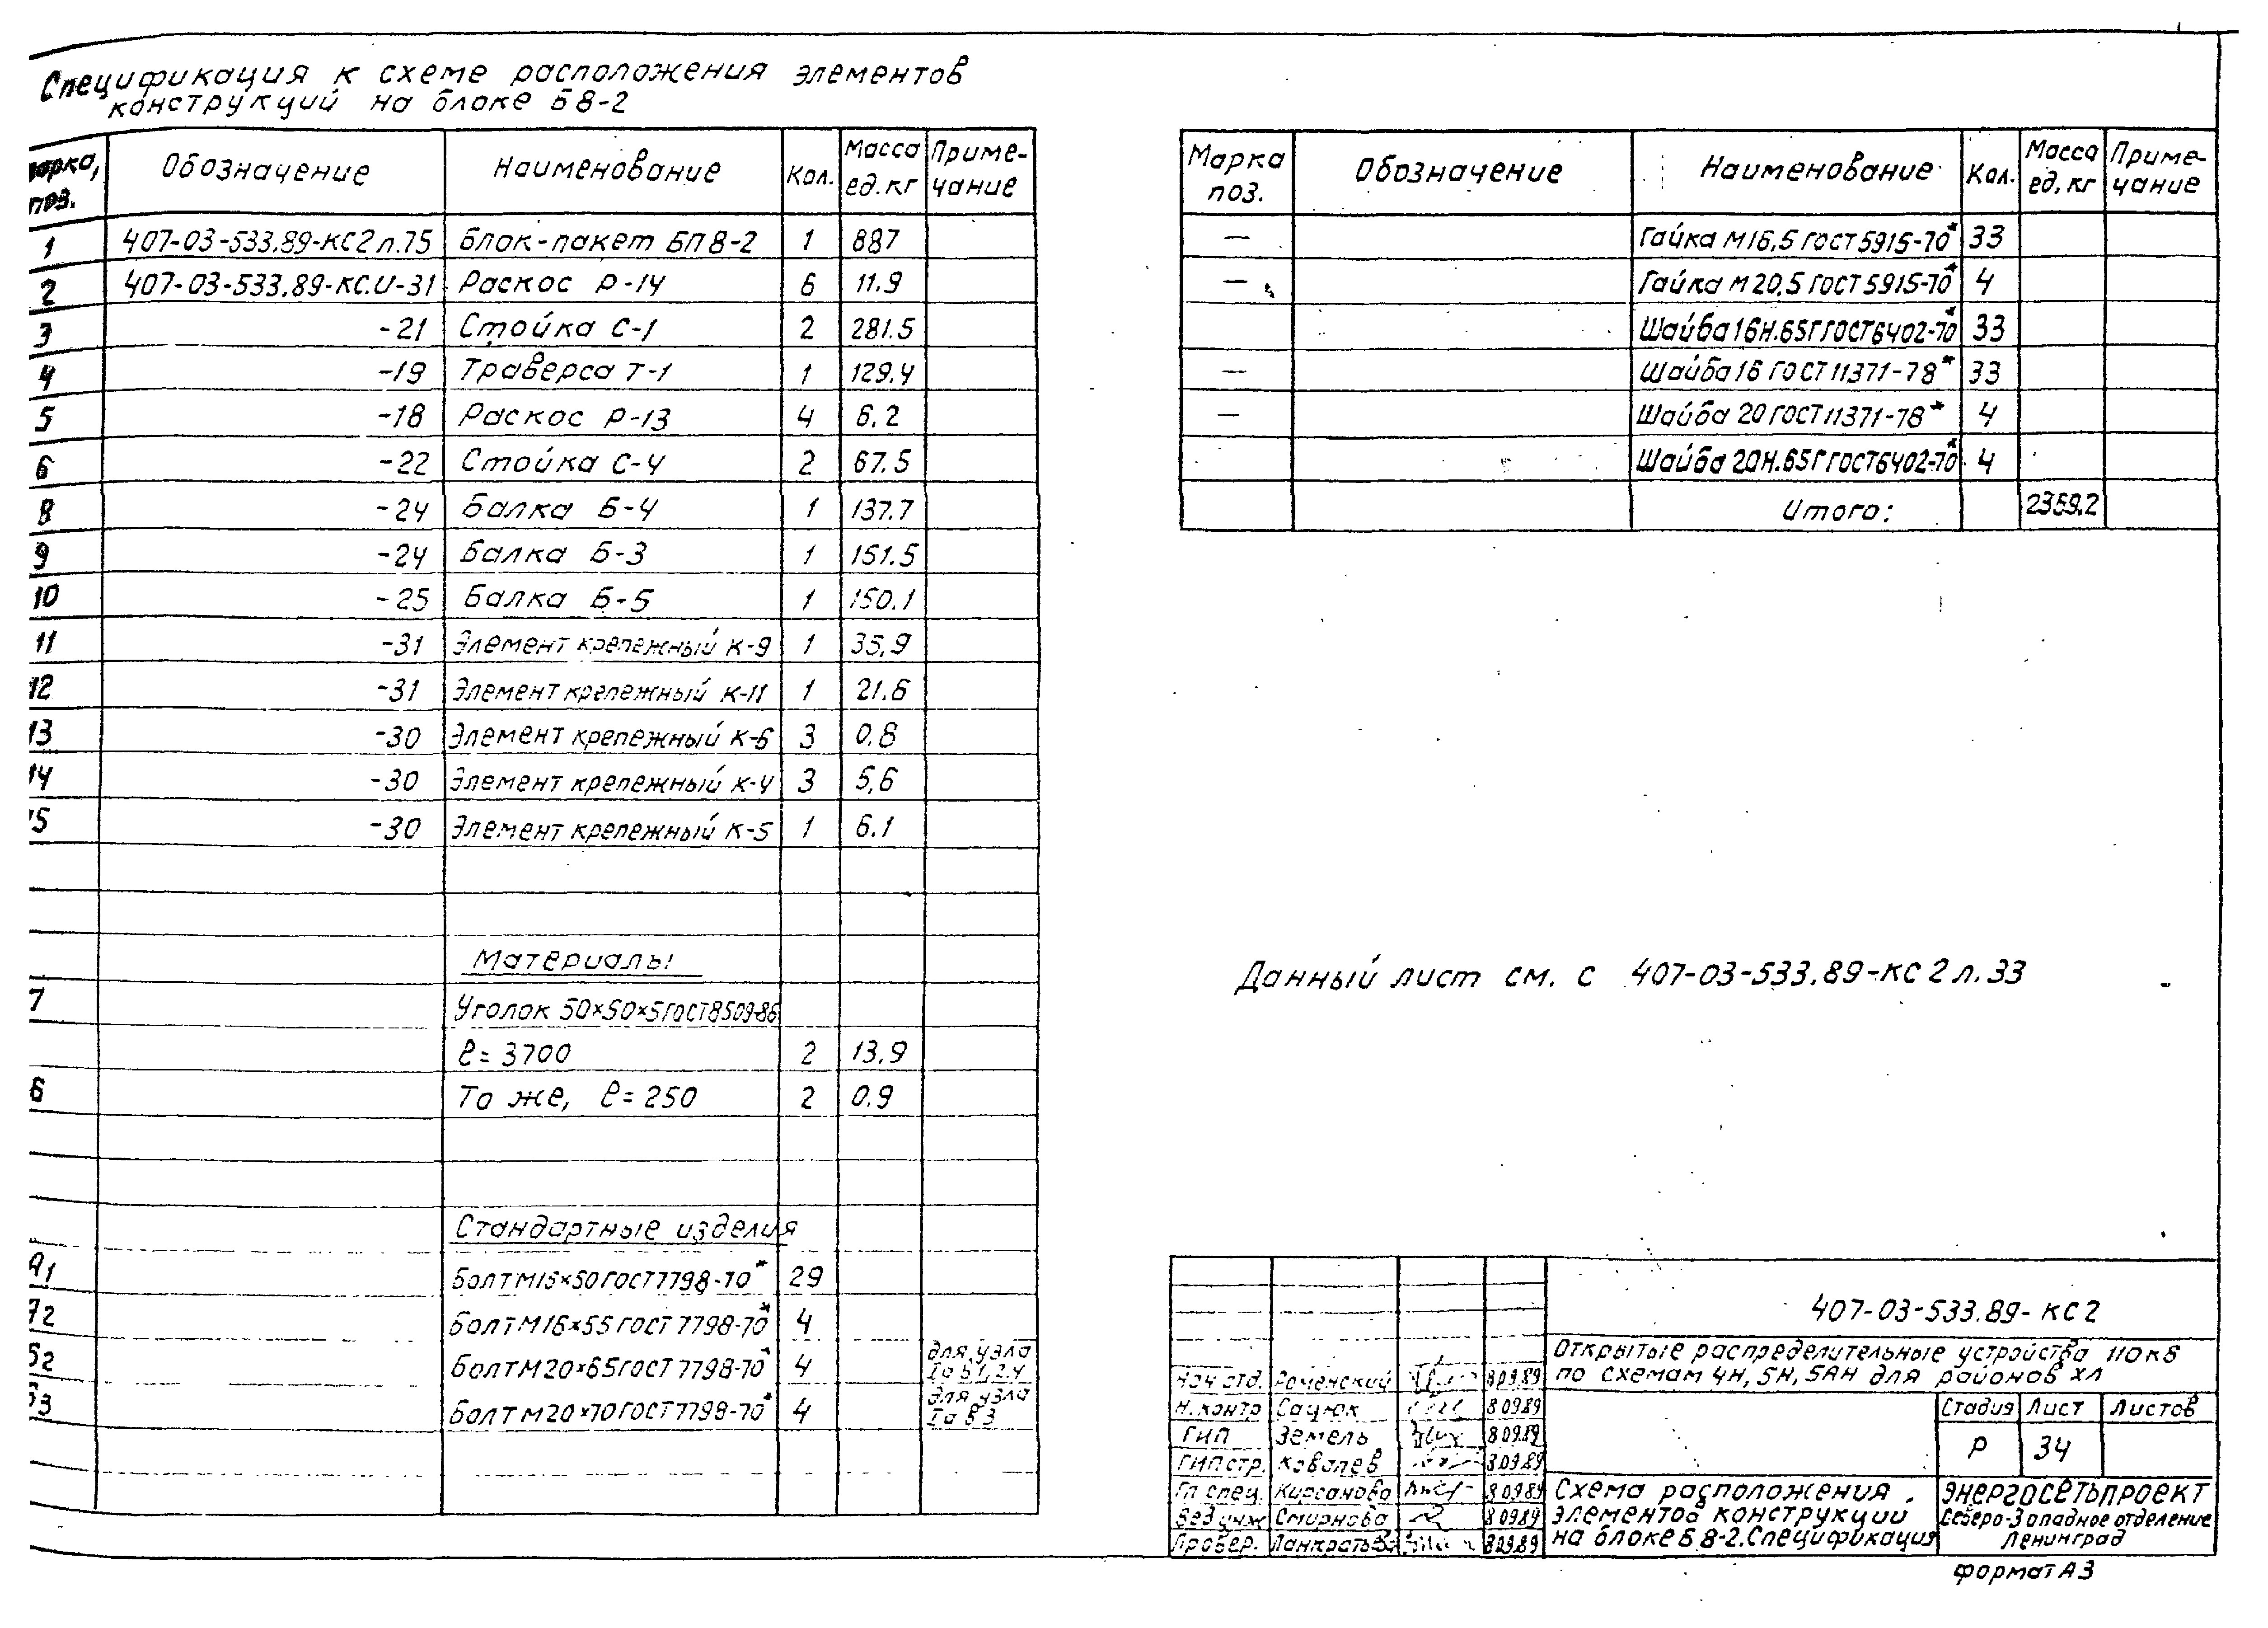 Спецификация к схеме расположения элементов
конструкций на блоке Б8-2
Марка, поз. Обозначение Наименование Кол. Масса ед.кг Примечание
1 407-03-533.89-КС2 л.75 Блок-пакет БП8-2 1 887
2 407-03-533.89-КС.И-31 Раскос Р-14 6 11.9
3 -21 Стойка С-1 2 281.5
4 -19 Траверса Т-1 1 129.4
5 -18 Раскос Р-13 4 6.2
6 -22 Стойка С-4 2 67.5
8 -24 Балка Б-4 1 137.7
9 -24 Балка Б-3 1 151.5
10 -25 Балка Б-5 1 150.1
11 -31 Элемент крепежный К-9 1 35,9
12 -31 Элемент крепежный К-11 1 21.6
13 -30 Элемент крепежный К-6 3 0.8
14 -30 Элемент крепежный К-4 3 5,6
15 -30 Элемент крепежный К-5 1 6.1
Материалы
7 Уголок 50×50×5 ГОСТ 8509-86
ℓ= 3700 2 13.9
6 То же, ℓ= 250 2 0.9
Стандартные изделия
Болт М16×50 ГОСТ 7798-70* 29
Болт М16×55 ГОСТ 7798-70* 4
Болт М20×65 ГОСТ 7798-70* 4 для узла
Болт М20×70 ГОСТ 7798-70* 4 для узла
Марка поз. Обозначение Наименование Кол. Масса ед.кг Примечание
— Гайка М16,5 ГОСТ 5915-70* 33
— Гайка М20,5 ГОСТ 5915-70* 4
Шайба 16Н.65Г ГОСТ 6402-70* 33
— Шайба 16 ГОСТ 11371-78* 33
— Шайба 20 ГОСТ 11371-78* 4
Шайба 20Н.65Г ГОСТ 6402-70* 4
Итого: 2359.2
Данный лист см. с 407-03-533.89-КС2 л.33
407-03-533.89-КС2
Открытые распределительные устройства 110кв
по схемам 4Н, 5Н, 5АН для районов ХЛ
Нач отд. Роменский 8.09.89
Н.контр Сацюк 8.09.89
ГИП Земель 8.09.89
ГИП стр. Ковалев 8.09.89
Гл спец. Кирсанова 8.09.89
Вед инж Смирнова 8.09.89
Провер. Панкратьева 8.09.89
Стадия Лист Листов
Р 34
Схема расположения
элементов конструкций
на блоке Б8-2. Спецификация
ЭНЕРГОСЕТЬПРОЕКТ
Северо-Западное отделение
Ленинград
Формат А3